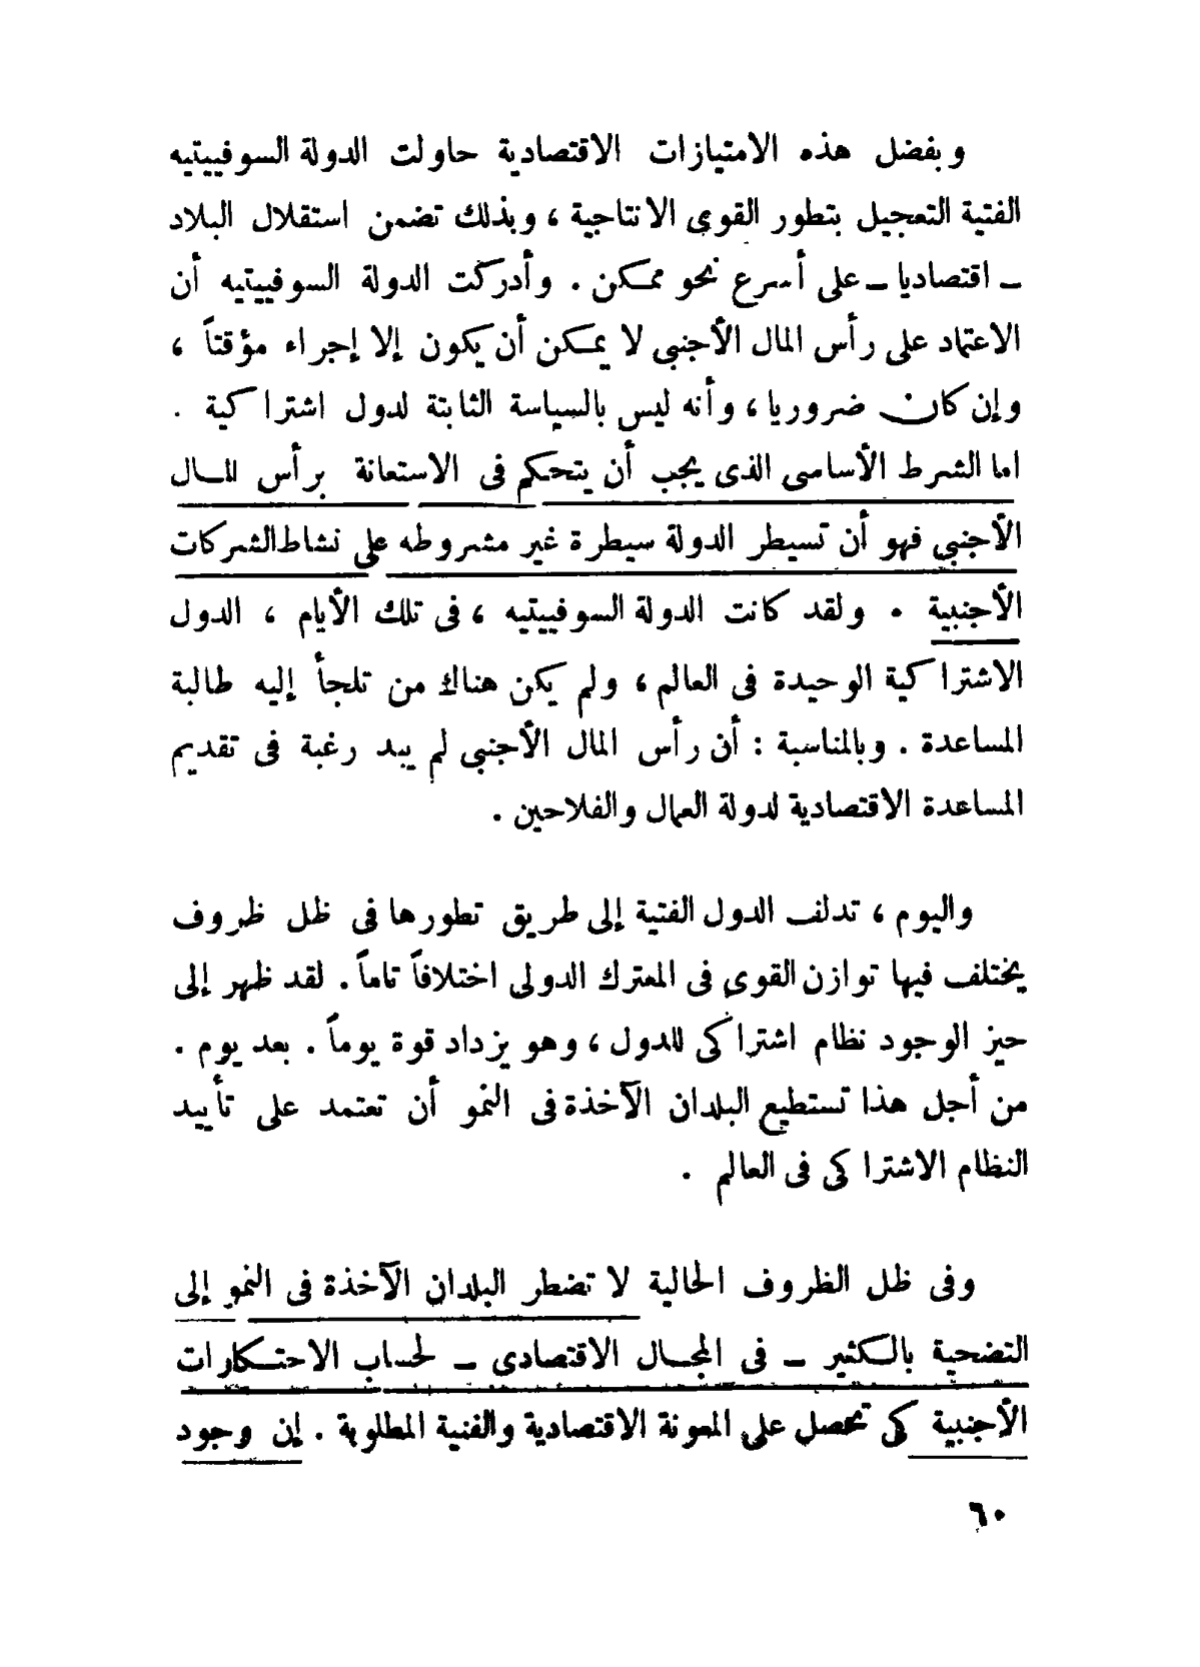 وبفضل هذه الامتيازات الاقتصادية حاولت الدولة السوفييتيه
الفتية التعجيل بتطور القوى الانتاجية ، وبذلك تضمن استقلال البلاد
ـ اقتصاديا ـ على أسرع نحو ممكن . وأدركت الدولة السوفييتيه أن
الاعتماد على رأس المال الأجنبى لا يمكن أن يكون إلا إجراء مؤقتاً ،
وإن كان ضروريا ، وأنه ليس بالسياسة الثابتة لدول اشتراكية .
اما الشرط الأساسى الذى يجب أن يتحكم فى الاستعانة برأس المال
الأجنبي فهو أن تسيطر الدولة سيطرة غير مشروطه على نشاط الشركات
الأجنبية . ولقد كانت الدولة السوفييتيه ، فى تلك الأيام ، الدول
الاشتراكية الوحيدة فى العالم ، ولم يكن هناك من تلجأ إليه طالبة
المساعدة . وبالمناسبة : أن رأس المال الأجنبى لم يبد رغبة فى تقديم
المساعدة الاقتصادية لدولة العمال والفلاحين .
واليوم ، تدلف الدول الفتية إلى طريق تطورها فى ظل ظروف
يختلف فيها توازن القوى فى المعترك الدولى اختلافاً تاماً . لقد ظهر إلى
حيز الوجود نظام اشتراكى للدول ، وهو يزداد قوة يوماً . بعد يوم .
من أجل هذا تستطيع البلدان الآخذة فى النمو أن تعتمد على تأييد
النظام الاشتراكى فى العالم .
وفى ظل الظروف الحالية لا تضطر البلدان الآخذة فى النمو إلى
التضحية بالكثير ـ فى المجال الاقتصادى ـ لحساب الاحتكارات
الأجنبية كى تحصل على المعونة الاقتصادية والفنية المطلوبة . إن وجود
٦٠